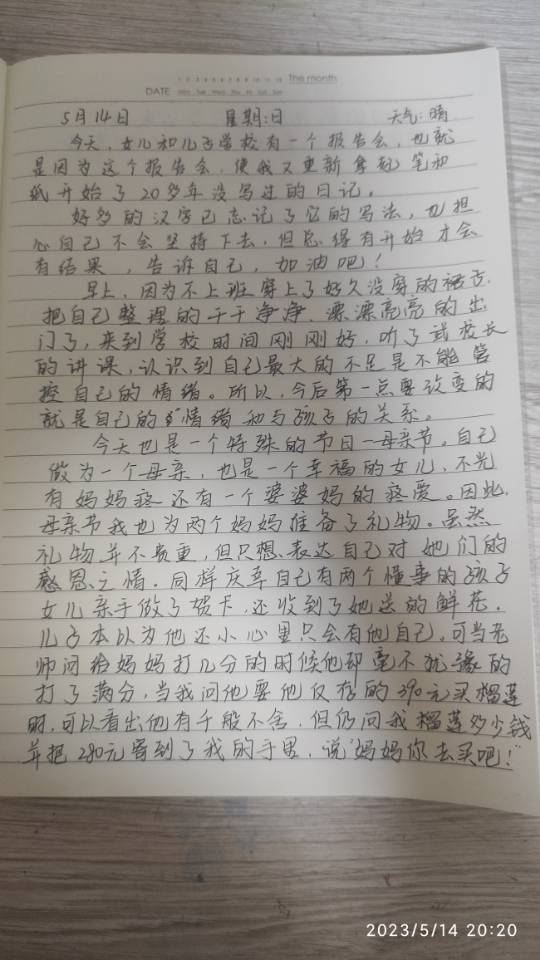 DATE Mon Tue Wed Thu Fri Sat Sun The month
5月14日 星期:日 天气:晴
今天,女儿和儿子学校有一个报告会,也就
是因为这个报告会,使我又重新拿起笔和
纸开始了20多年没写过的日记。
好多的汉字已忘记了它的写法,也担
心自己不会坚持下去,但总得有开始才会
有结果,告诉自己,加油吧!
早上,因为不上班穿上了好久没穿的裙子,
把自己整理的干干净净、漂漂亮亮的出
门了,来到学校时间刚刚好,听了武校长
的讲课,认识到自己最大的不足是不能管
控自己的情绪。所以,今后第一点要改变的
就是自己的情绪和与孩子的关系。
今天也是一个特殊的节日—母亲节。自己
做为一个母亲,也是一个幸福的女儿,不光
有妈妈疼还有一个婆婆妈的疼爱。因此,
母亲节我也为两个妈妈准备了礼物。虽然
礼物并不贵重,但只想表达自己对她们的
感恩之情。同样庆幸自己有两个懂事的孩子
女儿亲手做了贺卡,还收到了她送的鲜花,
儿子本以为他还小心里只会有他自己,可当老
师问给妈妈打几分的时候他却毫不犹豫的
打了满分,当我问他要他仅存的390元买榴莲
时,可以看出他有千般不舍,但仍问我榴莲多少钱
并把280元寄到了我的手里,说"妈妈你去买吧!"
2023/5/14 20:20